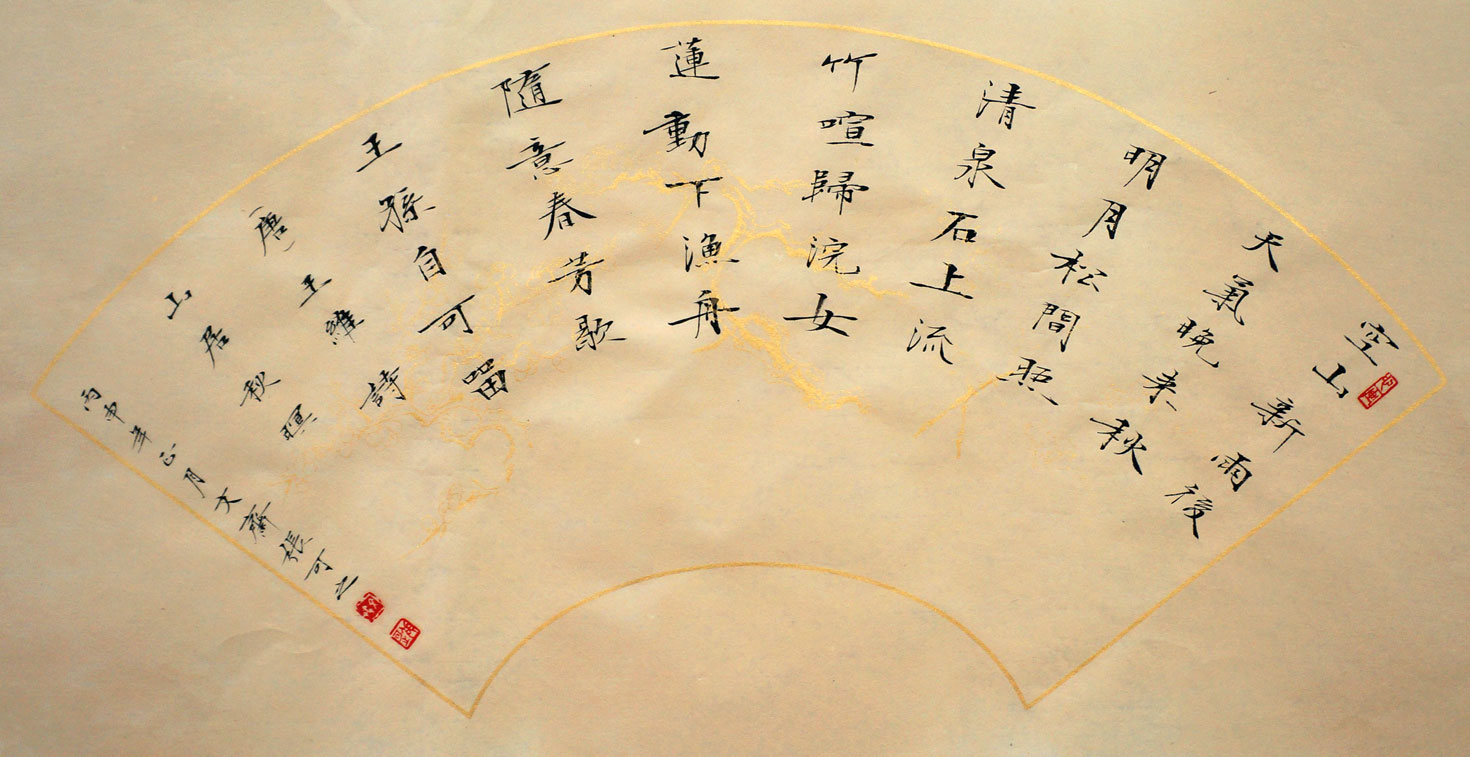 空山新雨後
天氣晚来秋
明月松間照
清泉石上流
竹喧歸浣女
蓮動下漁舟
隨意春芳歇
王孫自可留
（唐）王維詩
山居秋暝
丙申年正月文齋張可之